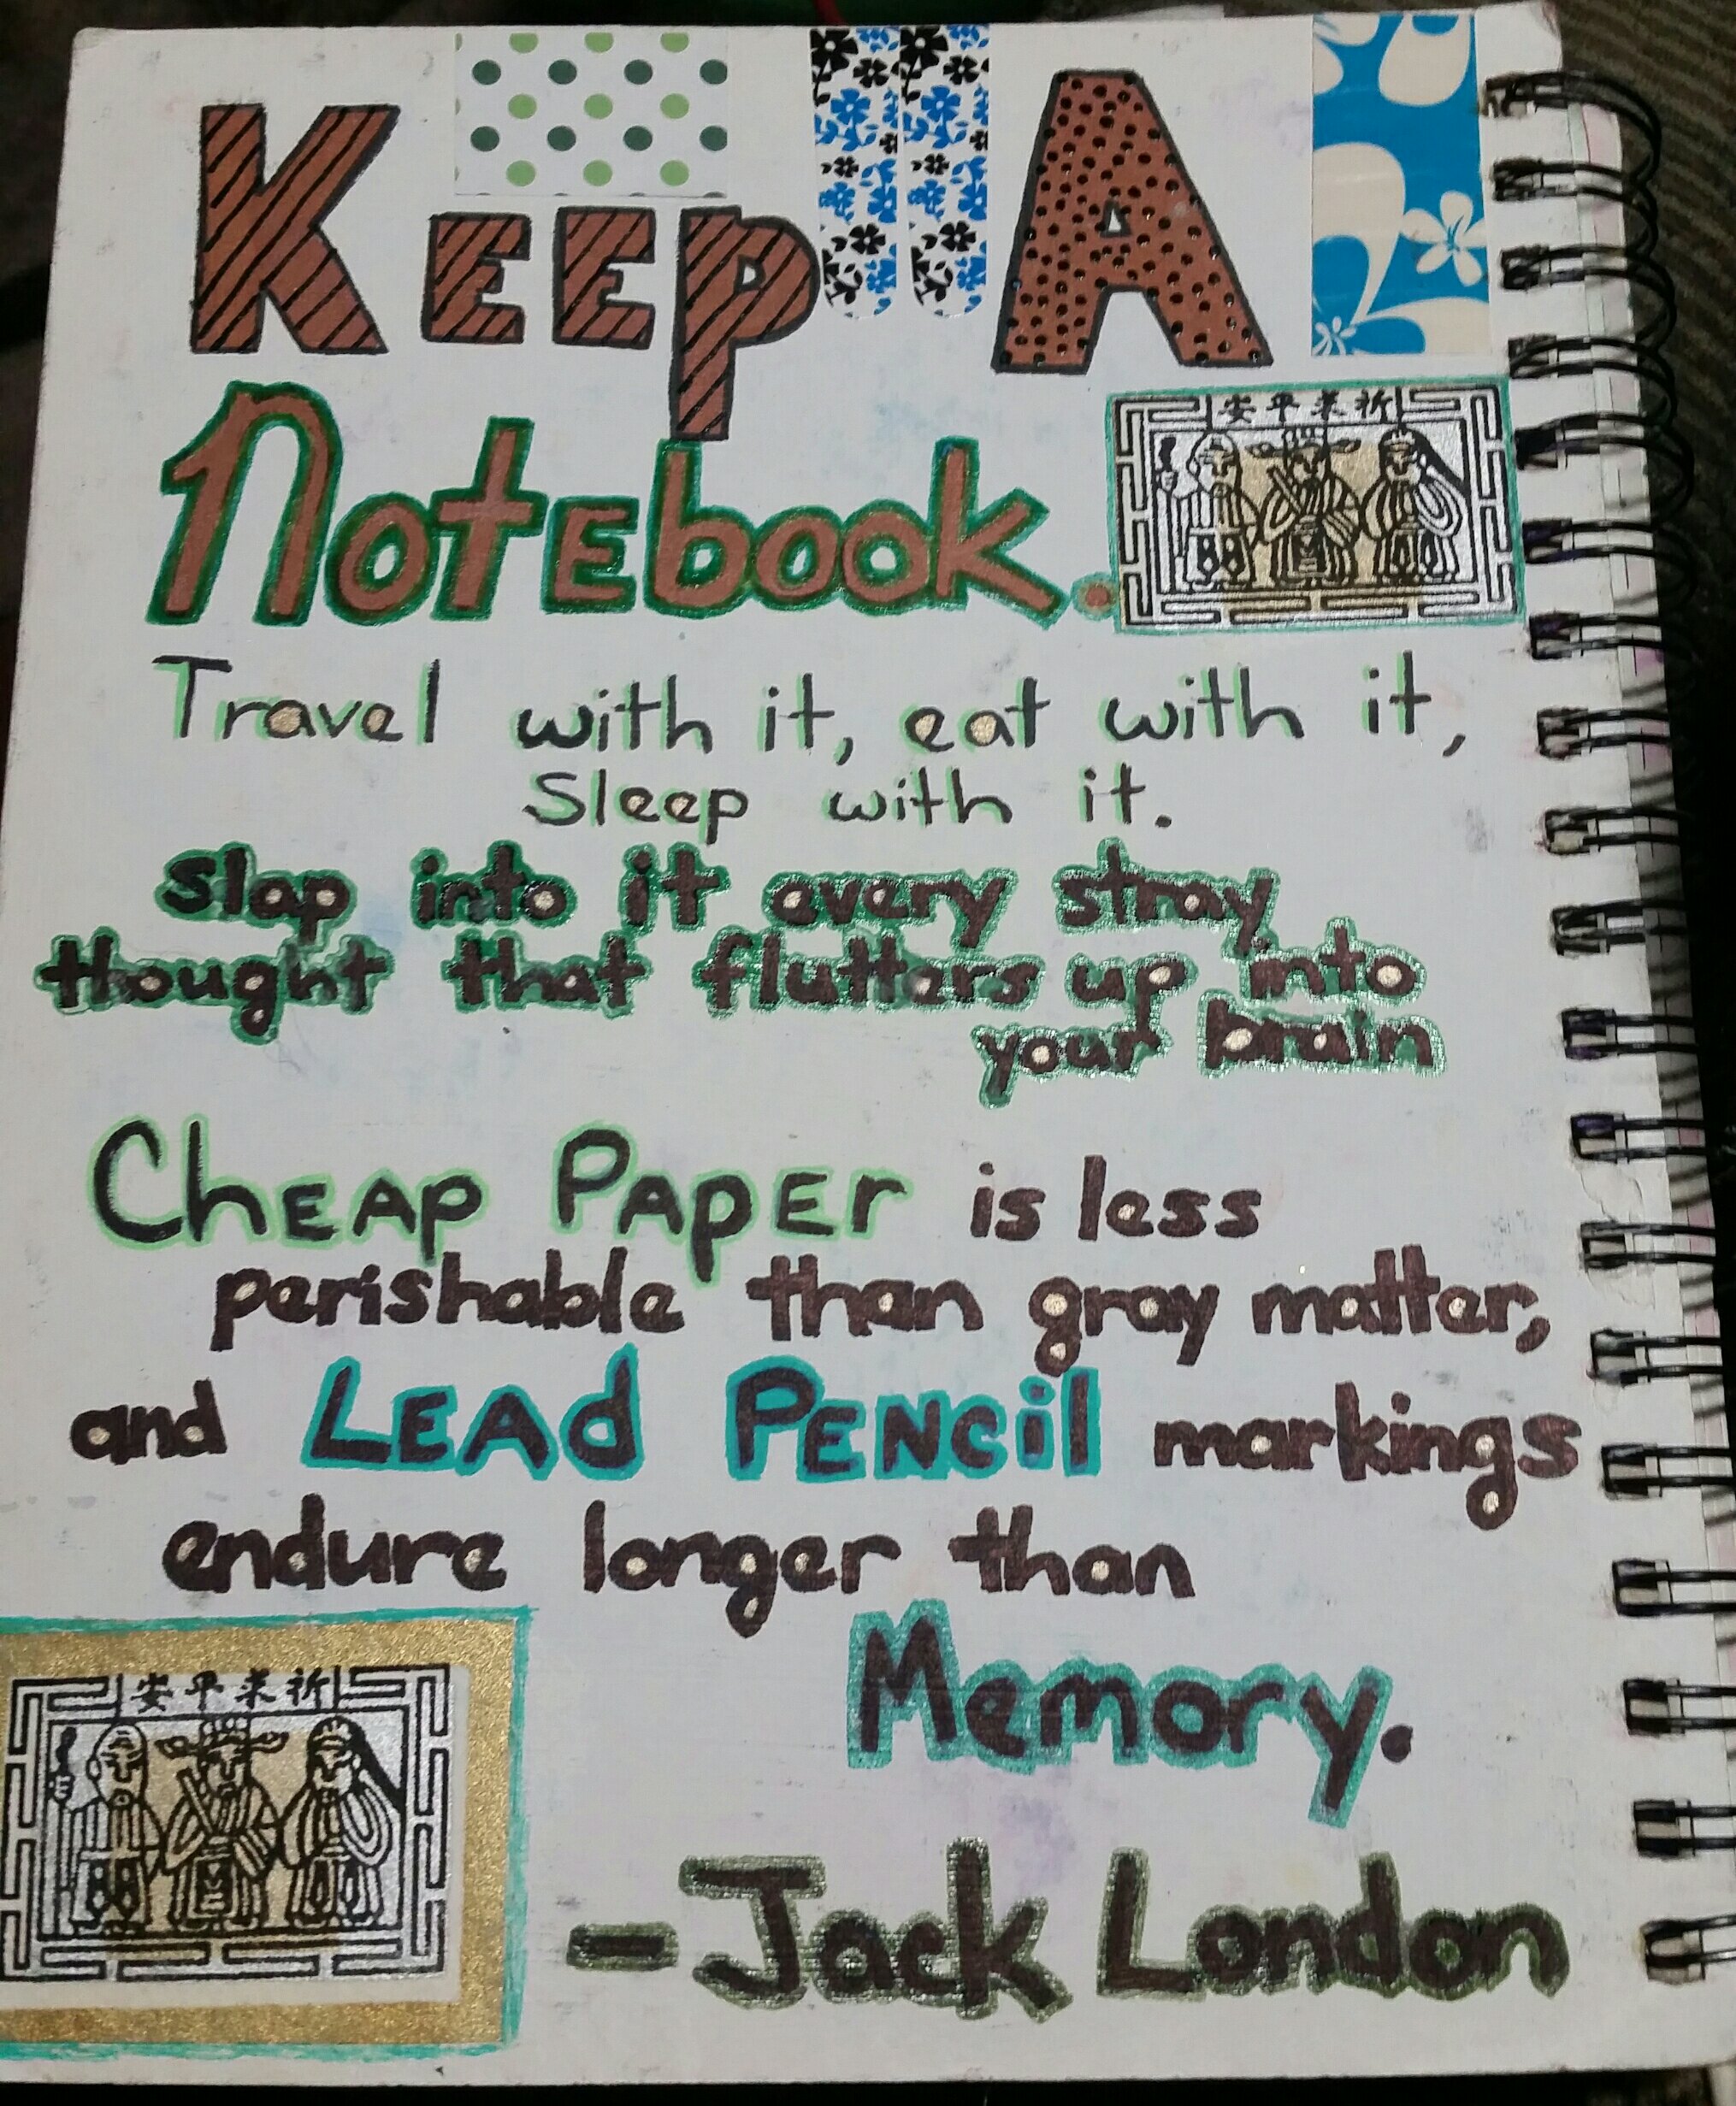 KEEP A
Notebook.
安平求祈
Travel with it, eat with it,
Sleep with it.
Slap into it every stray
thought that flutters up into
your brain
CHEAP PAPEr is less
perishable than gray matter,
and LEAd PENCil markings
endure longer than
Memory.
安平求祈
-Jack London